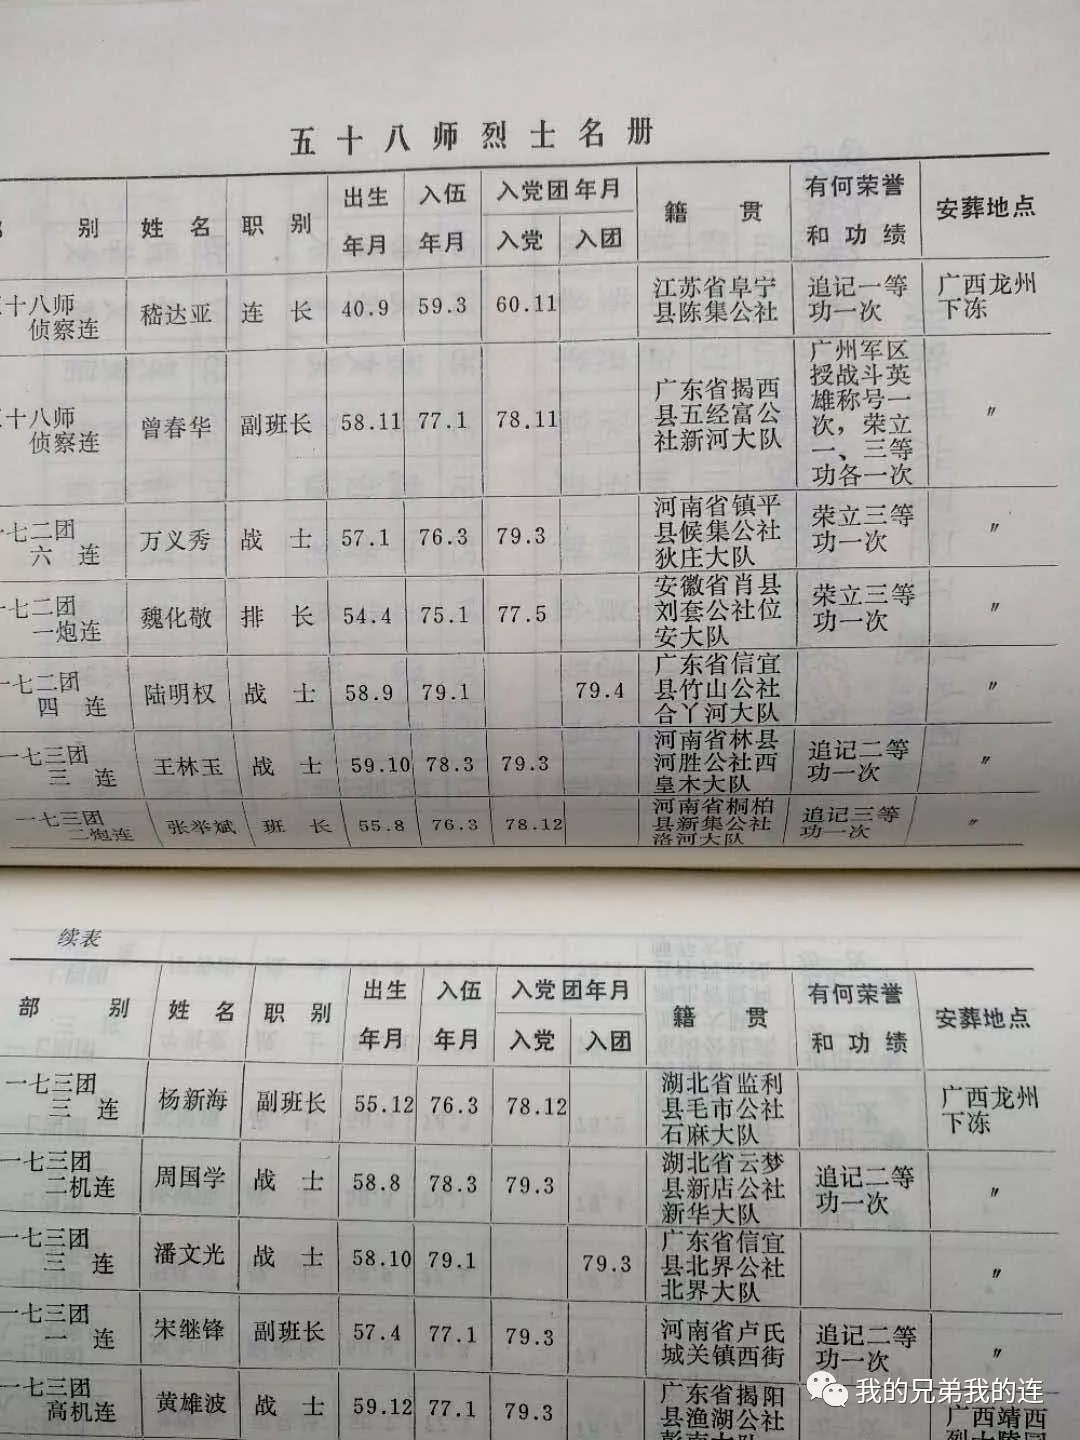 五十八师烈士名册
别 姓名 职别 出生年月 入伍年月 入党团年月 入党 入团 籍贯 有何荣誉和功绩 安葬地点
十八师侦察连 嵇达亚 连长 40.9 59.3 60.11 江苏省阜宁县陈集公社 追记一等功一次 广西龙州下冻
十八师侦察连 曾春华 副班长 58.11 77.1 78.11 广东省揭西县五经富公社新河大队 广州军区授战斗英雄称号一次，荣立一、三等功各一次 〃
一七二团六连 万义秀 战士 57.1 76.3 79.3 河南省镇平县候集公社狄庄大队 荣立三等功一次 〃
一七二团一炮连 魏化敬 排长 54.4 75.1 77.5 安徽省肖县刘套公社位安大队 荣立三等功一次 〃
一七二团四连 陆明权 战士 58.9 79.1 79.4 广东省信宜县竹山公社合丫河大队 〃
一七三团三连 王林玉 战士 59.10 78.3 79.3 河南省林县河胜公社西皇木大队 追记二等功一次 〃
一七三团二炮连 张举斌 班长 55.8 76.3 78.12 河南省桐柏县新集公社洛河大队 追记三等功一次 〃
续表
部别 姓名 职别 出生年月 入伍年月 入党团年月 入党 入团 籍贯 有何荣誉和功绩 安葬地点
一七三团三连 杨新海 副班长 55.12 76.3 78.12 湖北省监利县毛市公社石麻大队 广西龙州下冻
一七三团二机连 周国学 战士 58.8 78.3 79.3 湖北省云梦县新店公社新华大队 追记二等功一次 〃
一七三团三连 潘文光 战士 58.10 79.1 79.3 广东省信宜县北界公社北界大队 〃
一七三团一连 宋继锋 副班长 57.4 77.1 79.3 河南省卢氏城关镇西街 追记二等功一次 〃
一七三团高机连 黄雄波 战士 59.12 77.1 79.3 广东省揭阳县渔湖公社 广西靖西
我的兄弟我的连